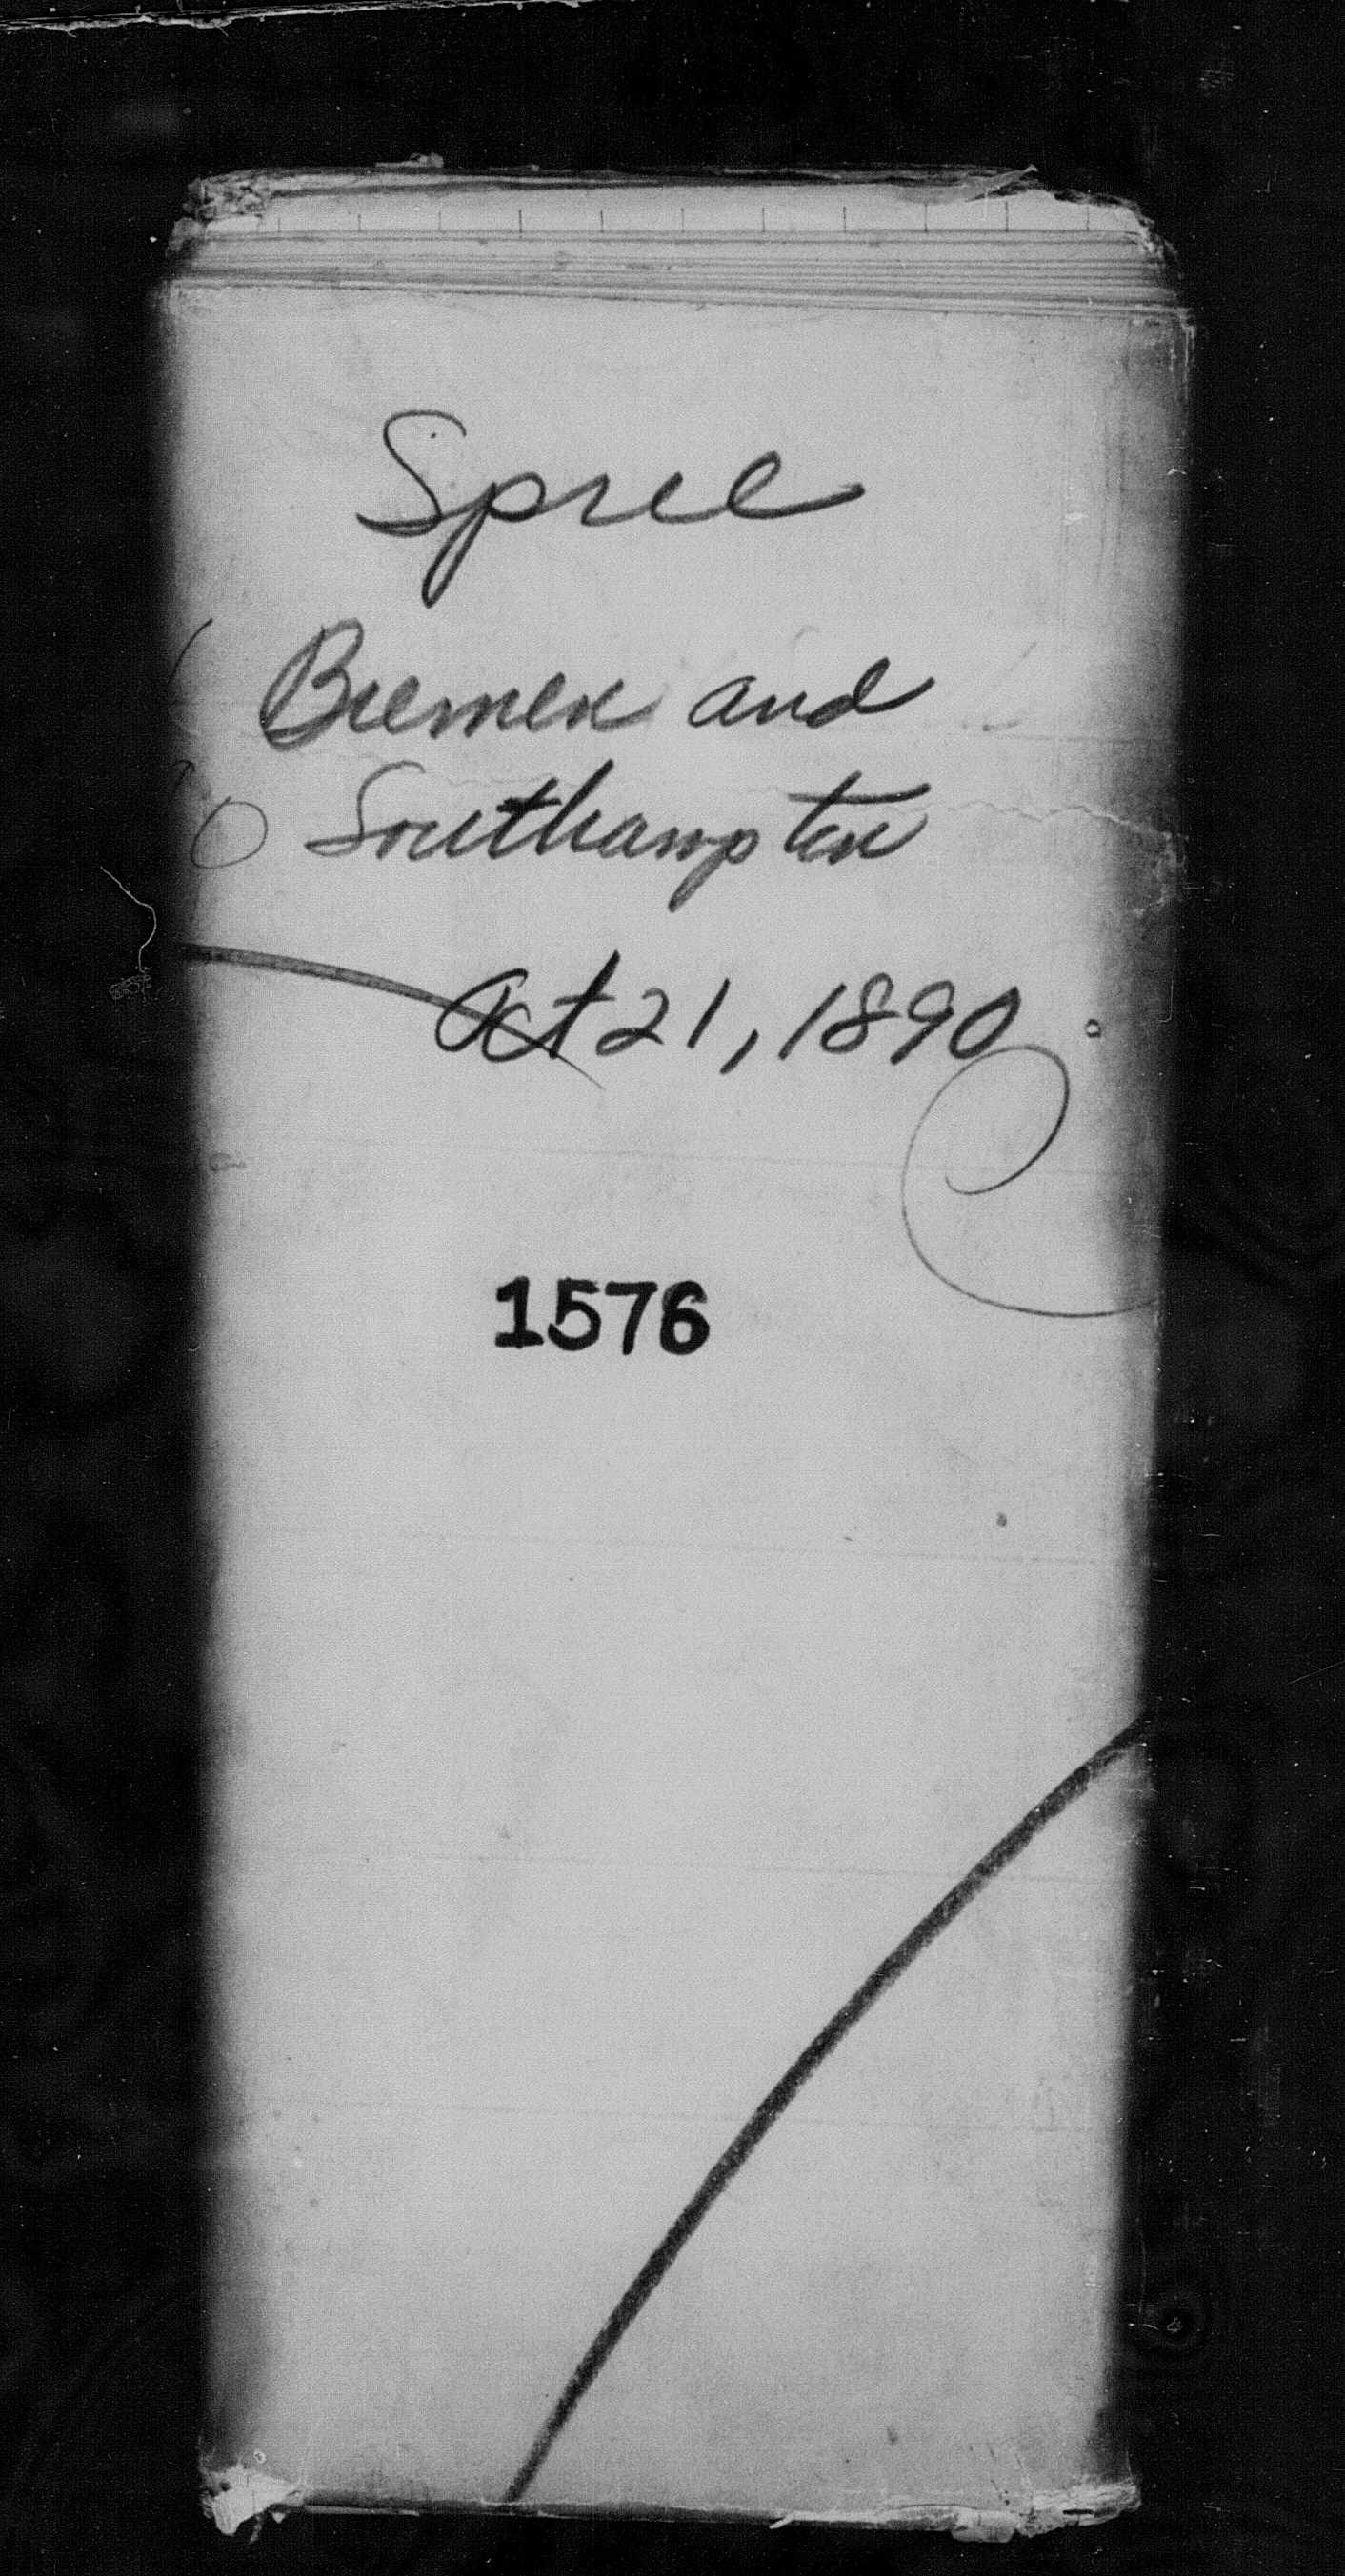 Spree
Bremen and
Southampton
Oct 21, 1890
1576